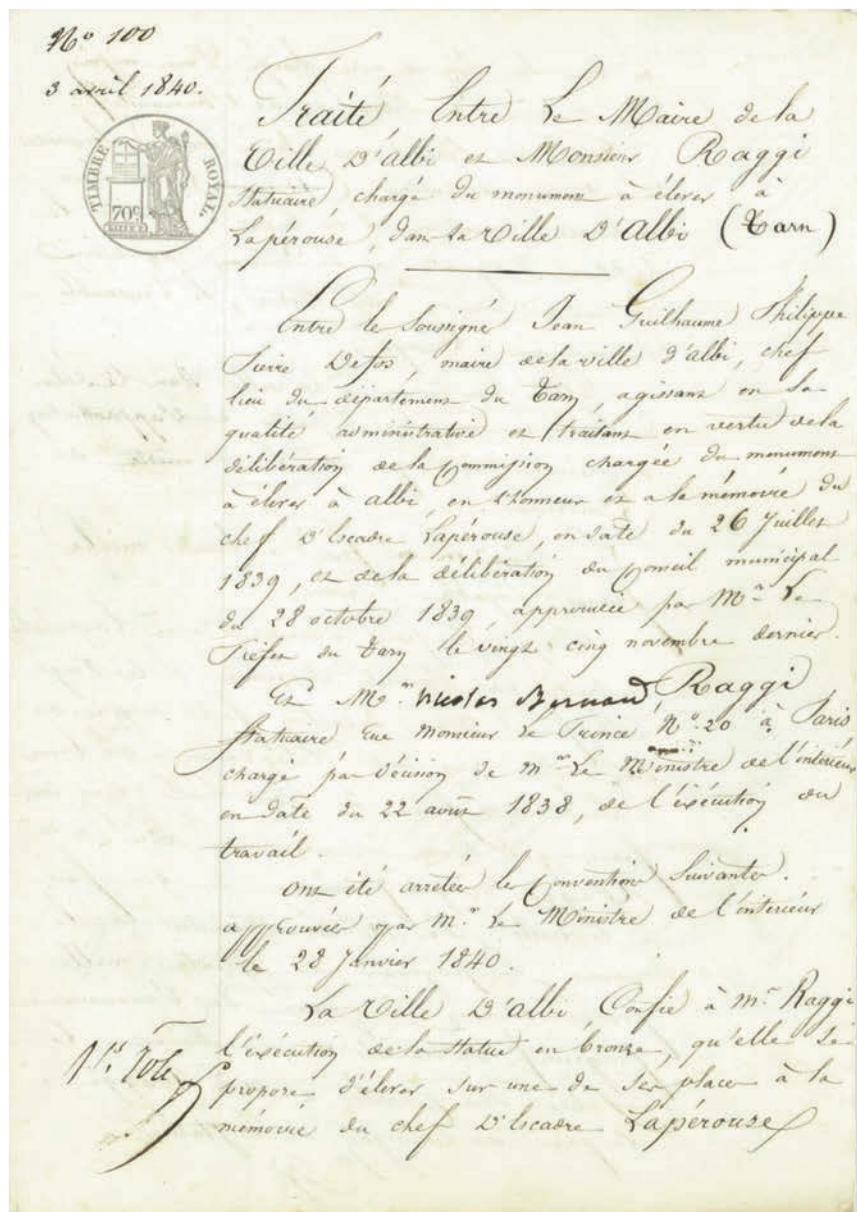 N° 100
3 avril 1840.
TIMBRE ROYAL
70c
Traité, Entre Le Maire de la
Ville D'albi et Monsieur Raggi
Statuaire, chargé du monument à élever à
Lapérouse, dans la Ville D'Albi (Tarn)
Entre le Soussigné Jean Guilhaume Philippe
Pierre Defos, maire de la ville d'albi, chef
lieu du département du Tarn, agissant en sa
qualité administrative et traitant en vertu de la
délibération de la Commission chargée du monument
à élever à albi, en l'honneur et a la mémoire du
chef D'Escadre Lapérouse, en date du 26 Juillet
1839, et de la délibération du Conseil municipal
du 28 octobre 1839 approuvée par Mr. Le
Préfet du Tarn le vingt cinq novembre dernier.
Et Mr. Nicolas Bernard, Raggi
Statuaire Rue Monsieur Le Prince N°. 20 à Paris,
chargé par décision de mr. Le Ministre de l'intérieur
en date du 22 août 1838, de l'exécution du
travail.
ont été arrêtées les Conventions Suivantes.
approuvées par Mr. Le Ministre de l'interieur
le 28 Janvier 1840.
La Ville D'albi Confie à mr. Raggi
l'exécution de la Statue en bronze, qu'elle se
propose d'élever sur une de ses places à la
mémoire du chef D'Escadre Lapérouse
1er. Rôle